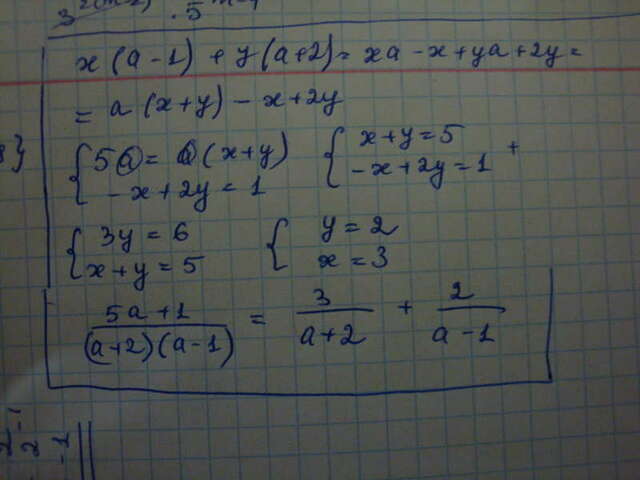 3^{2(m-2)} · 5^{m-1}
x(a-1) + y(a+2) = xa - x + ya + 2y =
= a(x+y) - x + 2y
{ 5a = a(x+y) { x+y = 5 +
-x + 2y = 1 -x + 2y = 1
{ 3y = 6 { y = 2
x+y = 5 x = 3
5a+1 / (a+2)(a-1) = 3 / a+2 + 2 / a-1